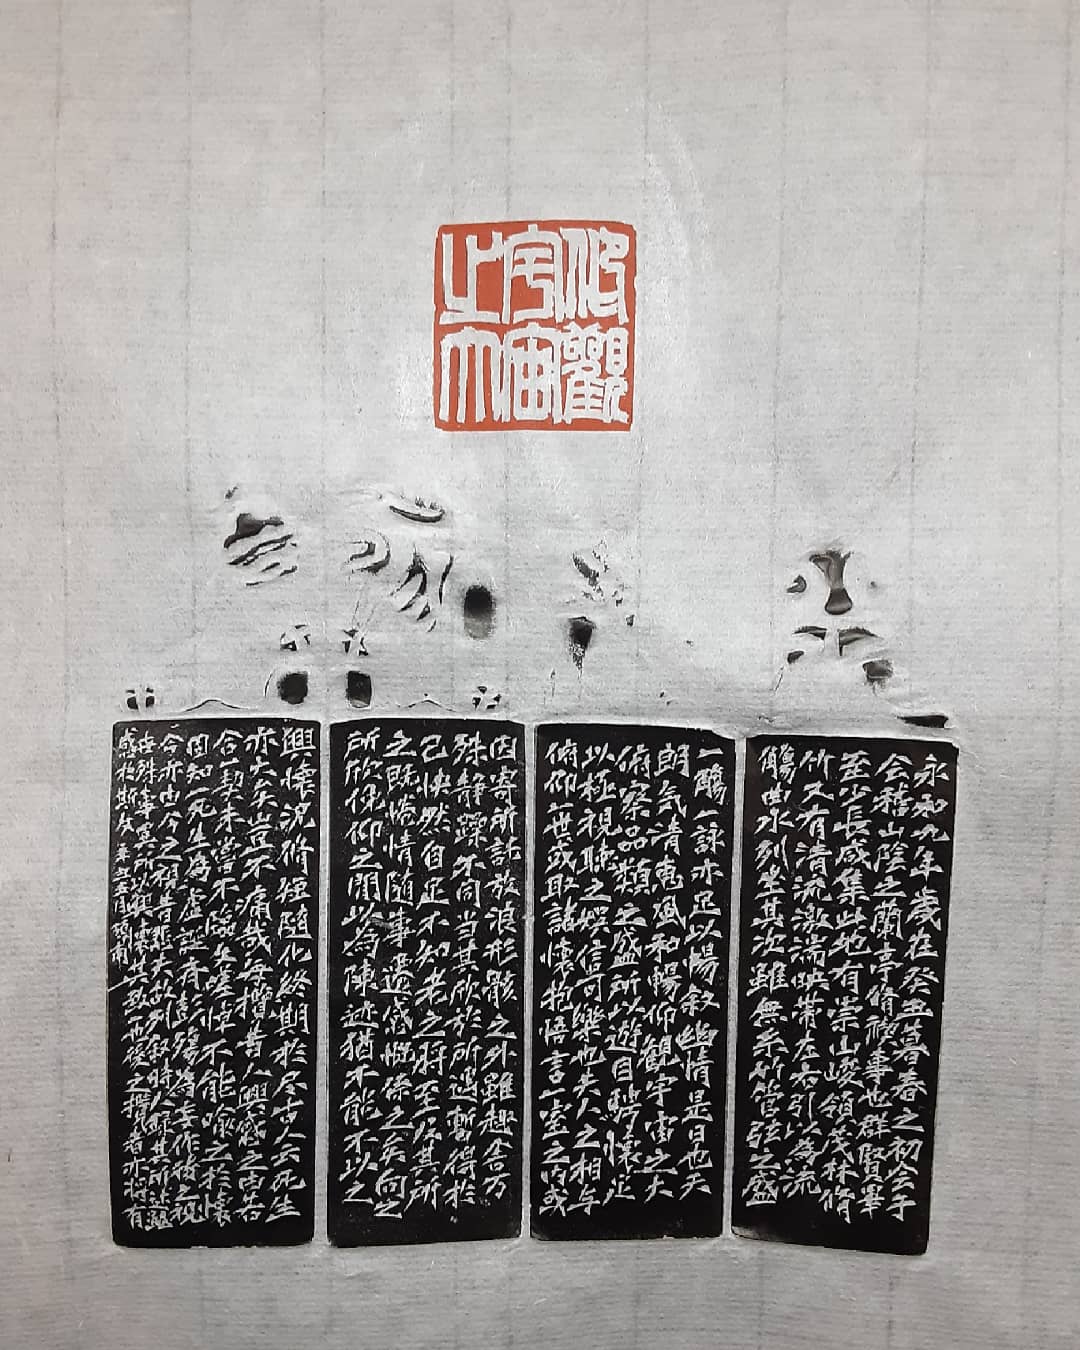 仰觀宇宙之大
永和九年歲在癸丑暮春之初会于
会稽山陰之蘭亭脩稧事也群賢畢
至少長咸集此地有崇山峻領茂林脩
竹又有清流激湍映帶左右引以為流
觴曲水列坐其次雖無糸竹管弦之盛
一觴一詠亦足以暢敘幽情是日也天
朗气清惠風和暢仰觀宇宙之大
俯察品類之盛所以遊目騁懷足
以極視聽之娯信可樂也夫人之相与
俯仰一世或取諸懷抱悟言一室之内或
因寄所託放浪形骸之外雖趣舍万
殊静躁不同当其欣於所遇暫得於
己怏然自足不知老之将至及其所
之既惓情随事遷感慨係之矣向之
所欣俛仰之閒以為陳迹猶不能不以之
興懷況脩短隨化終期於尽古人云死生
亦大矣豈不痛哉每攬昔人興感之由若
合一契未嘗不臨文嗟悼不能喻之於懷
固知一死生為虛誕齊彭殤為妄作後之視
今亦由今之視昔悲夫故列叙時人録其所述雖
世殊事異所以興懷其致一也後之攬者亦将有
感於斯文